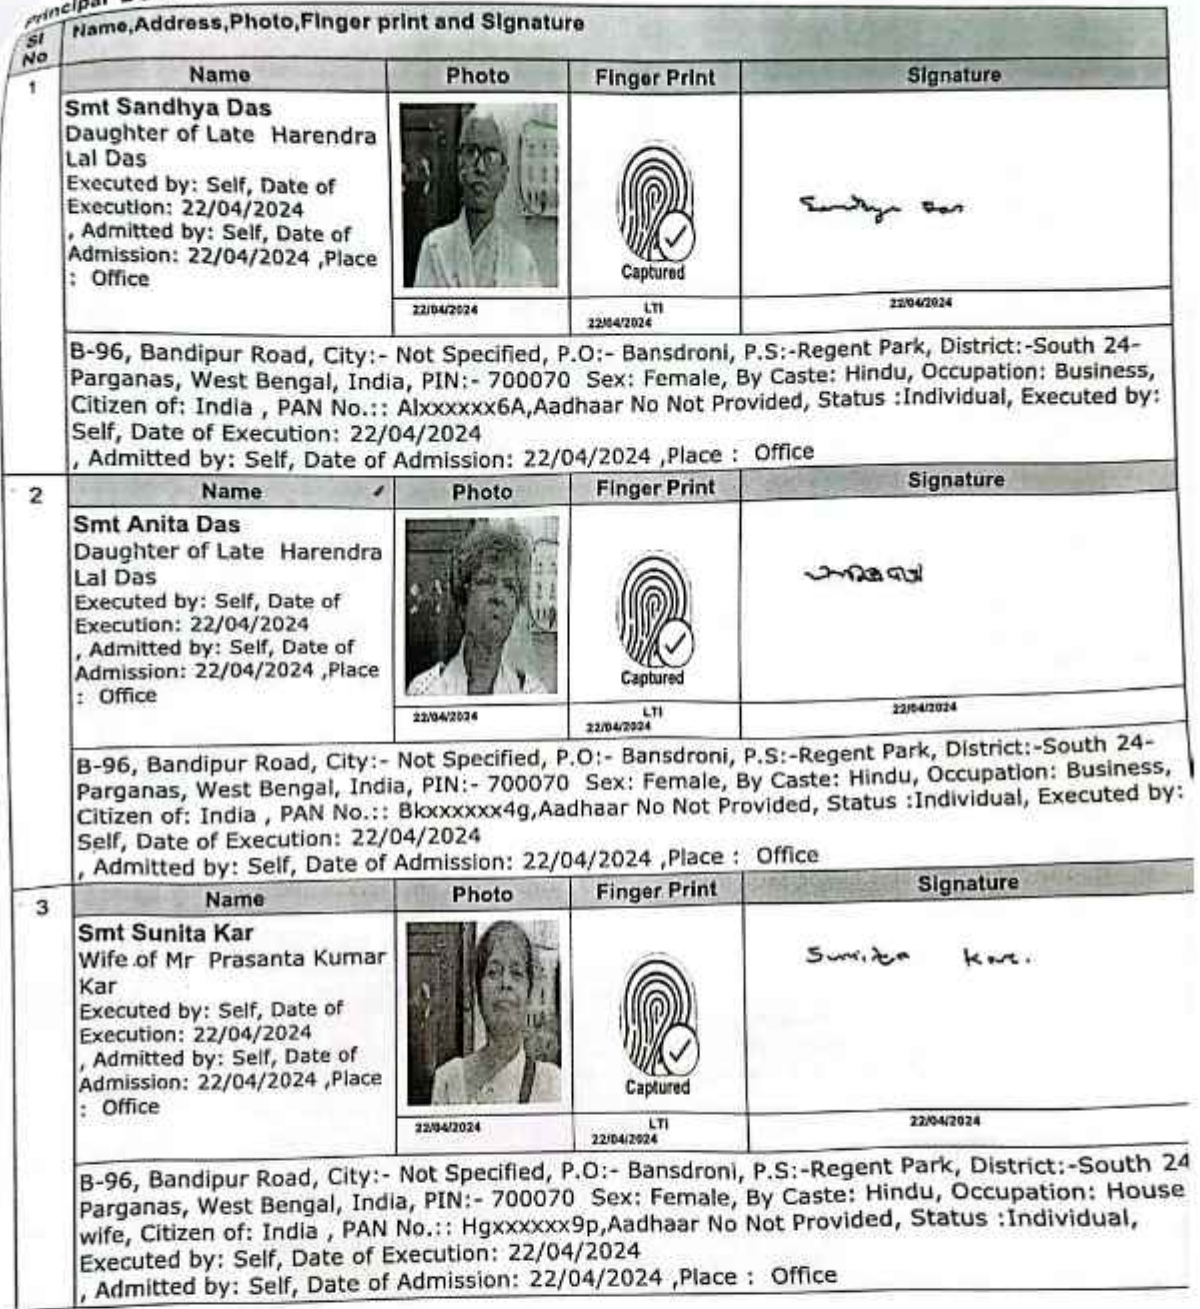 Principal
SI No Name,Address,Photo,Finger print and Signature
1 Name Photo Finger Print Signature
Smt Sandhya Das
Daughter of Late Harendra
Lal Das
Executed by: Self, Date of
Execution: 22/04/2024
, Admitted by: Self, Date of
Admission: 22/04/2024 ,Place
: Office
Captured
Sandhya Das
22/04/2024 LTI 22/04/2024 22/04/2024
B-96, Bandipur Road, City:- Not Specified, P.O:- Bansdroni, P.S:-Regent Park, District:-South 24-
Parganas, West Bengal, India, PIN:- 700070 Sex: Female, By Caste: Hindu, Occupation: Business,
Citizen of: India , PAN No.:: AIxxxxxx6A,Aadhaar No Not Provided, Status :Individual, Executed by:
Self, Date of Execution: 22/04/2024
, Admitted by: Self, Date of Admission: 22/04/2024 ,Place : Office
2 Name Photo Finger Print Signature
Smt Anita Das
Daughter of Late Harendra
Lal Das
Executed by: Self, Date of
Execution: 22/04/2024
, Admitted by: Self, Date of
Admission: 22/04/2024 ,Place
: Office
Captured
22/04/2024 LTI 22/04/2024 22/04/2024
B-96, Bandipur Road, City:- Not Specified, P.O:- Bansdroni, P.S:-Regent Park, District:-South 24-
Parganas, West Bengal, India, PIN:- 700070 Sex: Female, By Caste: Hindu, Occupation: Business,
Citizen of: India , PAN No.:: Bkxxxxxx4g,Aadhaar No Not Provided, Status :Individual, Executed by:
Self, Date of Execution: 22/04/2024
, Admitted by: Self, Date of Admission: 22/04/2024 ,Place : Office
3 Name Photo Finger Print Signature
Smt Sunita Kar
Wife of Mr Prasanta Kumar
Kar
Executed by: Self, Date of
Execution: 22/04/2024
, Admitted by: Self, Date of
Admission: 22/04/2024 ,Place
: Office
Captured
Sunita Kar.
22/04/2024 LTI 22/04/2024 22/04/2024
B-96, Bandipur Road, City:- Not Specified, P.O:- Bansdroni, P.S:-Regent Park, District:-South 24
Parganas, West Bengal, India, PIN:- 700070 Sex: Female, By Caste: Hindu, Occupation: House
wife, Citizen of: India , PAN No.:: Hgxxxxxx9p,Aadhaar No Not Provided, Status :Individual,
Executed by: Self, Date of Execution: 22/04/2024
, Admitted by: Self, Date of Admission: 22/04/2024 ,Place : Office